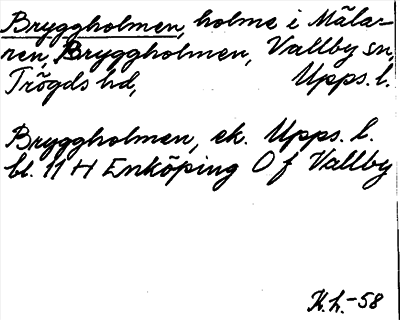 Bryggholmen, holme i Mälar-
ren, Bryggholmen, Vallby sn,
Trögds hd, Upps. l.
Bryggholmen, ek. Upps. l.
bl. 11 H Enköping O f Vallby
K.h.-58